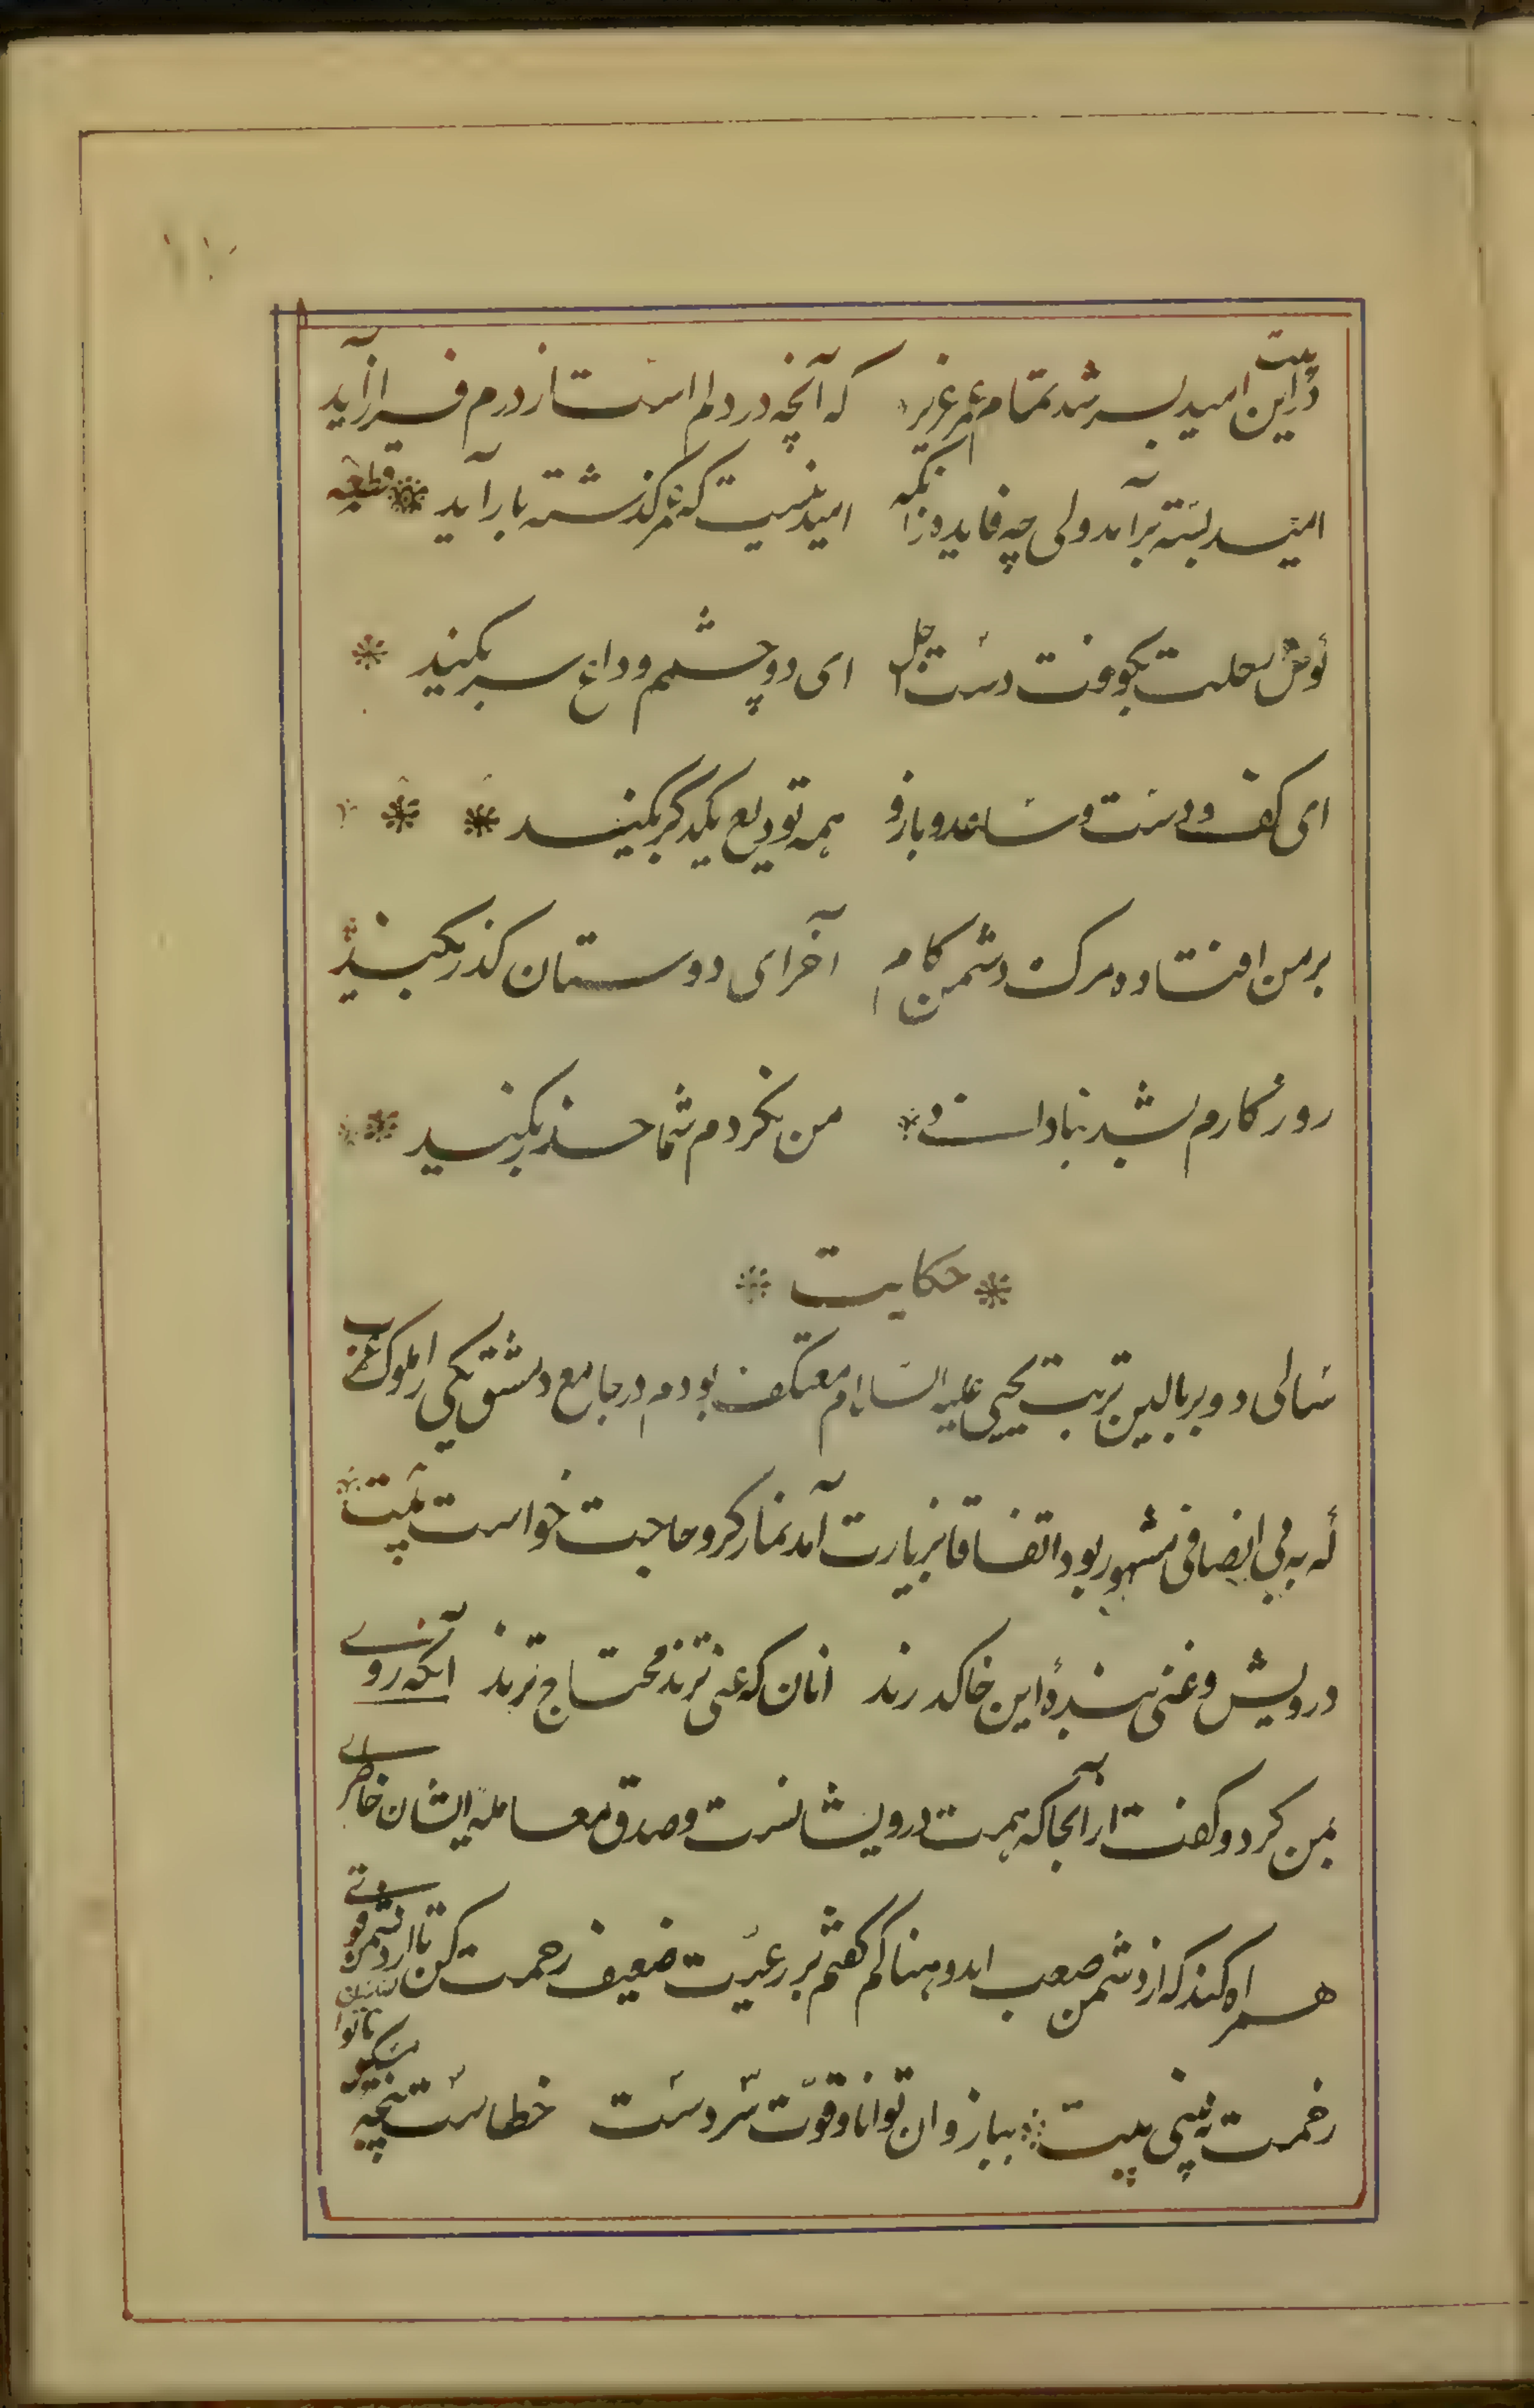 بیت
دراین امید بسر شد تمام عمر عزیز که آنچه در دلم است از درم فراز آید
امید بسته برآمد ولی چه فایده زانکه امید نیست که عمر کذشته باز آید قطعه
کوس رحلت بکوفت دست اجل ای دو چشم وداع سر بکنید
ای کف و دست و ساعد و بازو همه تودیع یکدکر بکنید
بر من افتاده مرک دشمن کام آخر ای دوستان کذر بکنید
روزکارم بشد بنادانی من نکردم شما حذر بکنید
حکایت
سالی دو بر بالین تربت یحیی علیه السلام معتکف بودم در جامع دمشق یکی از ملوک عرب
که به بی انصافی مشهور بود اتفاقا بزیارت آمد نماز کرد و حاجت خواست بیت
درویش و غنی بندهٔ این خاک درند انان که غنی ترند محتاج ترند آنکه روی
بمن کرد و کفت از آنجا که همت درویشانست و صدق معامله ایشان خاطری
همراه کنند که از دشمن صعب اندوهناکم کفتم بر رعیّت ضعیف رحمت کن تا از دشمن قوی
زحمت نه بینی بیت ببازوان توانا و قوّت سر دست خطا ست پنجه
مسکین ناتوان